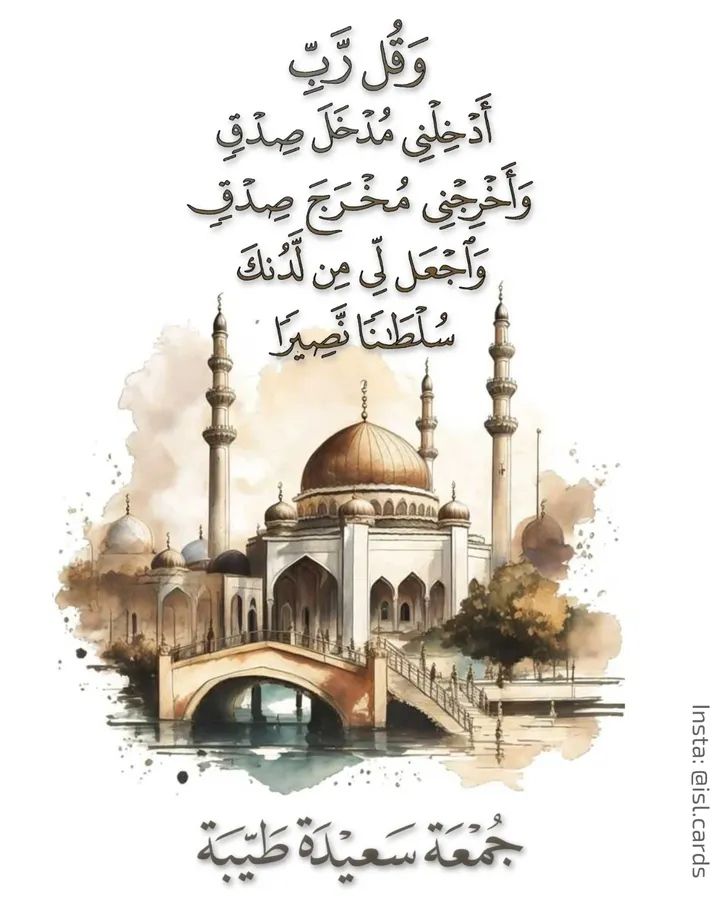 وَقُل رَّبِّ
أَدْخِلْنِى مُدْخَلَ صِدْقٍ
وَأَخْرِجْنِى مُخْرَجَ صِدْقٍ
وَٱجْعَل لِّى مِن لَّدُنكَ
سُلْطَـٰنًا نَّصِيرًا
جُمْعَة سَعيْدَة طَيّبَة
Insta: @isl.cards